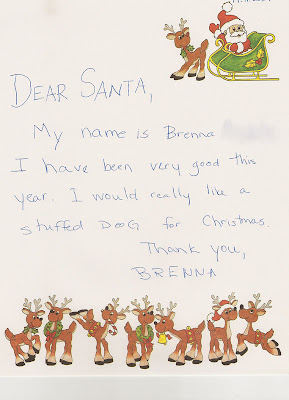 DEAR SANTA,
My name is Brenna
I have been very good this
year. I would really like a
stuffed DOG for Christmas.
Thank you,
BRENNA